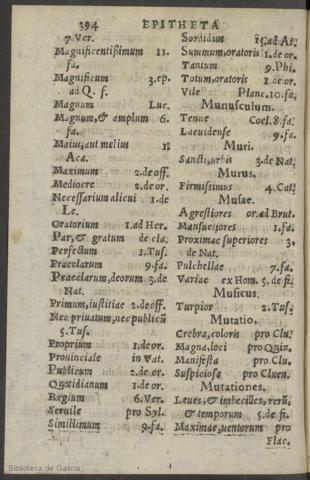 394 EPITHETA
7. Ver.
Magnificentißimum 11.
fa.
Magnificum 3. ep.
ad Q. f.
Magnum Luc.
Magnum, & amplum 6.
fa.
Maius, aut melius 1.
Aca.
Maximum 2. de off.
Mediocre 2. de or.
Necessarium alicui 1. de
Le.
Oratorium 1. ad Her.
Par, & gratum de cla.
Perfectum 1. Tus.
Praeclarum 9. fa.
Praeclarum, deorum 3. de
Nat.
Primum, iustitiae 2. de off.
Nec priuatum, nec publicū
5. Tus.
Proprium 1. de or.
Prouinciale in Vat.
Publicum 2. de or.
Quotidianum 1. de or.
Regium 6. Ver.
Seruile pro Syl.
Simillimum 9. fa.
Sordidius 15. ad At.
Summum, oratoris 1. de or.
Tantum 9. Phi.
Totum, oratoris 1 de or.
Vile Planc. 10. fa.
Munusculum.
Tenue Coel. 8. fa.
Laeuidense 9. fa.
Muri.
Sancti, urbis 3. de Nat.
Murus.
Firmissimus 4. Cat.
Musae.
Agrestiores or. ad Brut.
Mansuetiores 1. fa.
Proximae superiores 3.
de Nat.
Pulchellae 7. fa.
Variae ex Hom. 5. de fi.
Musicus.
Turpior 2. Tus.
Mutatio.
Crebra, coloris pro Clu.
Magna, loci pro Quin.
Manifesta pro Clu.
Suspiciosa pro Cluen.
Mutationes.
Leues, & imbecilles, rerū,
& temporum 5. de fi.
Maximae, uentorum pro
Flac.
Biblioteca de Galicia